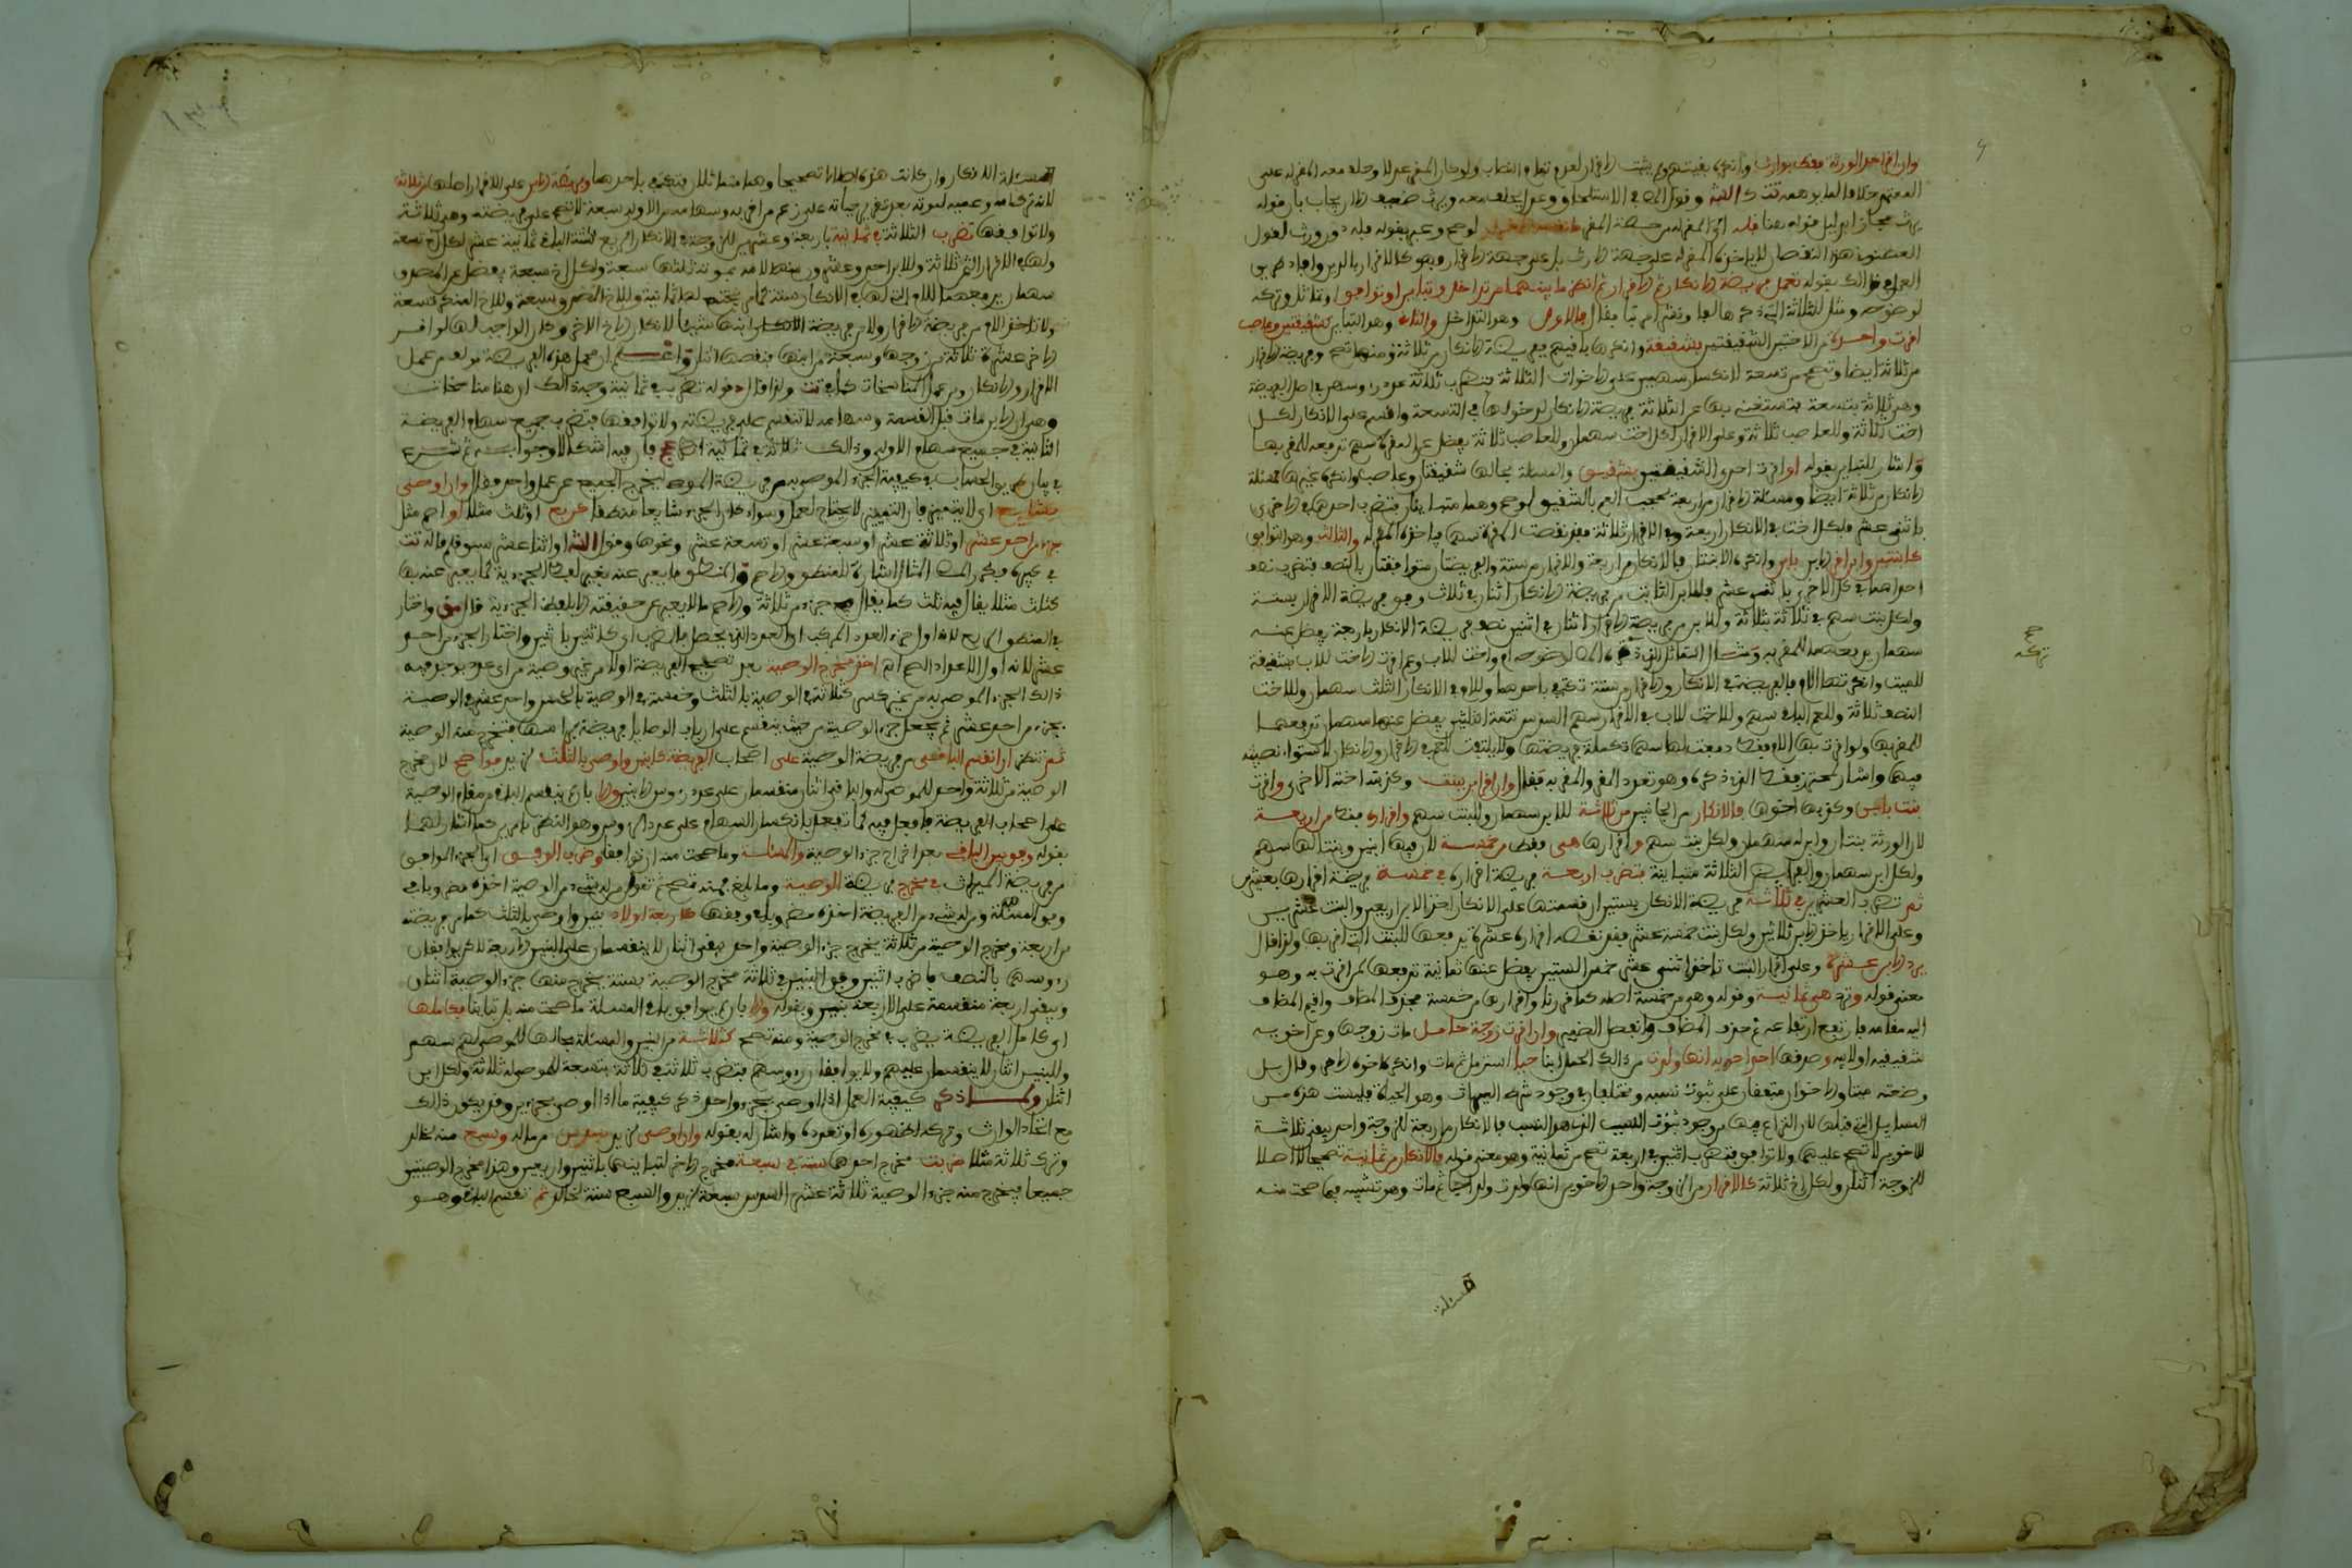 وان اقر احد الورثة فقط بوارث وانكره بقيتهم لم يثبت الاقرار لعدم تمام النصاب ولو كان المقر عدلا وحلف معه المقر له على
المعتمد خلافا لما يوهمه تت كالشـ وقول المص في الاستلحاق وعدل يحلف معه ويرث ضعيف
يرث مجازا بدليل قوله هنا فله اي المقر له من حصة المقر
هذا النقصان لا ياخذه المقر له على جهة الارث بل على جهة الاقرار فهو كالاقرار بالدين وافاد طريق
العمل في ذلك بقوله تعمل فريضة الانكار ثم الاقرار ثم انظر ما بينهما من تداخل وتباين وتوافق وتماثل وتركه
لوضوحه ومثل للثلاثة التي ذكرها الاول وهو التداخل والثاني وهو التباين كشقيقتين وعاصب
اقرت واحدة من الاختين الشقيقتين بشقيقة وانكرها باقيهم ففريضة الانكار من ثلاثة ومنها تصح وفريضة الاقرار
من ثلاثة ايضا وتصح من تسعة لانكسار سهمين على الاخوات الثلاثة فتضرب ثلاثة عدد رءوسهم في اصل الفريضة
وهو ثلاثة بتسعة فتستغني بها عن الثلاثة فريضة الانكار لدخولها في التسعة واقسم على الانكار لكل
اخت ثلاثة وللعاصب ثلاثة وعلى الاقرار لكل اخت سهمان وللعاصب ثلاثة يفضل عن المقرة سهم تدفعه للمقر بها
واشار للتباين بقوله او اقرت احدى الشقيقتين بشقيق والمسئلة بحالها شقيقتان وعاصب وانكره غيرها فمسئلة
الانكار من ثلاثة ايضا ومسئلة الاقرار من اربعة لحجب العم بالشقيق وهما متباينان فتضرب احدهما في الاخرى
باثني عشر فلكل اخت في الانكار اربعة وفي الاقرار ثلاثة فقد نقصت المقرة سهما ياخذه المقر له والثالث وهو التوافق
كابنتين وابن اقر الابن بابن وانكره الابنتان فالانكار من اربعة والاقرار من ستة والفريضتان متوافقتان بالنصف فتضرب نصف
احداهما في كل الاخرى باثني عشر فللابن اثنان من فريضة الانكار اثنان في ثلاث وفق فريضة الاقرار بستة
ولكل بنت سهم في ثلاثة بثلاثة وللابن من فريضة الاقرار اثنان في اثنين نصف فريضة الانكار باربعة يفضل عنه
سهمان يدفعهما للمقر به ومثال التماثل الذي تركه المص لوضوحه ام واخت للاب وعم اقرت الاخت للاب بشقيقة
للميت وانكرتها الام فالفريضة في الانكار والاقرار من ستة تكتفي باحدهما وللام في الانكار الثلث سهمان وللاخت
النصف ثلاثة وللعم الباقي سهم وللاخت للاب في الاقرار سهم السدس تتمة الثلثين يفضل عنها سهمان تدفعهما
للمقر بها ولو اقرت بها الام فقط دفعت لها سهما تكملة فريضتها ولا يلتفت للعم في الاقرار والانكار لاستواء نصيبه
فيها واشار لمحترز فقط الذي ذكره وهو تعدد المقر والمقر به فقال وان اقر ابن ببنت وكذبته اخته الاخرى واقرت
بنت بابن وكذبها اخوها فالانكار من الجانبين من ثلاثة للابن سهمان وللبنت سهم واقراره فقط من اربعة
لان الورثة بنتان وابن له سهمان ولكل بنت سهم واقرارها هي فقط من خمسة لان فيها ابنين وبنتا لها سهم
ولكل ابن سهمان والفرائض الثلاثة متباينة فتضرب اربعة فريضة اقراره في خمسة فريضة اقرارها بعشرين
ثم تضرب العشرين في ثلاثة فريضة الانكار بستين ان قسمتها على الانكار اخذ الابن اربعين والبنت عشرين
وعلى الاقرار ياخذ الابن ثلاثين ولكل بنت خمسة عشر فقد نقصه اقراره عشرة يدفعها للبنت التي اقر بها ولذا قال
يرد الابن عشرة وعلى اقرار البنت تاخذ اثني عشر خمس الستين يفضل عنها ثمانية تدفعها لمن اقرت به وهو
معنى قوله وترد هي ثمانية وقوله وهي من خمسة اصله كما قررنا واقرارها من خمسة فحذف المضاف واقيم المضاف
اليه مقامه فارتفع ارتفاعه ثم حذف المضاف وانفصل الضمير وان اقرت زوجة حامل مات زوجها وعن اخويه
شقيقيه او لابيه وصدقها احد اخويه انها ولدت من ذلك الحمل ابنا حيا استهل ثم مات وانكره اخوه الاخر وقال بل
وضعته ميتا والاخوان متفقان على ثبوت نسبه ومختلفان في وجود شرط الميراث وهو الحياة فليست هذه من
المسايل التي قبلها لان النزاع فيها من وجود ثبوت السبب الذي هو النسب فالانكار من اربعة للزوجة واحد يبقى ثلاثة
للاخوين لا تصح عليهما ولا توافق فتضرب اثنين في اربعة تصح من ثمانية وهو معنى قوله فالانكار من ثمانية تصحيحا لا اصلا
للزوجة اثنان ولكل اخ ثلاثة كالاقرار من الزوجة واحد الاخوين انها ولدت ولدا حيا ثم مات وهو تشبيه فيما صحت منه
صح
تركه
مسئلة
مسئلة الانكار وان كانت هذه اصلا لا تصحيحا وهما متماثلان فتكتفي باحدهما وفريضة الابن على الاقرار اصلها من ثلاثة
لانه ترك امه وعميه لموته بعد تقرر حياته على زعم من اقر به وسهامه من الاولى سبعة لا تصح على فريضته وهي ثلاثة
ولا توافقها تضرب الثلاثة في ثمانية باربعة وعشرين للزوجة في الانكار الربع ستة الباقي ثمانية عشر لكل اخ تسعة
ولها في الاقرار الثمن ثلاثة وللابن احد وعشرون منها لامه بموته ثلثها سبعة ولكل اخ سبعة يفضل عن المصدق
سهمان يدفعهما للام التي لها في الانكار ستة كما مر يجتمع لها ثمانية وللاخ المقر سبعة وللاخ المنكر تسعة
ولا تاخذ الام من فريضة الاقرار ولا من فريضة الانكار ابنها شيئا لانكار الاخ الاخر وكان الواجب لها لو اقر
الاخر عشرة ثلاثة من زوجها وسبعة من ابنها فنقصها اثنان واعلم ان عمل هذه الفريضة مؤلف من عمل
الاقرار والانكار ومن عمل المناسخات كما في تت ولذا قال د قوله تضرب في ثمانية وجه ذلك ان هنا مناسخات
وهو ان الابن مات قبل القسمة وسهامه لا تنقسم على فريضته ولا توافقها فتضرب جميع سهام الفريضة
الثانية في جميع سهام الاولى وذلك ثلاثة في ثمانية انظر عج فان فيه اشكالا وجوابه ثم شرع
في بيان طريق الحساب في كيفية الجزء الموصى به من فريضة الموصي ليخرج الجميع من عمل واحد فقال وان اوصى
بشايع اي لا بتعيين فان التعيين لا يحتاج لعمل وسواء كان الجزء شايعا منطقا كربع او ثلث مثلا او اصم مثل
جزء من احد عشر او ثلاثة عشر او سبعة عشر او تسعة عشر ونحوها وقول الشـ او اثنا عشر سبق قلم قاله تت
في كبيره فذكر المص المثال اشارة للمنطق والاصم والمنطق ما يعبر عنه بغير لفظ الجزءية كما يعبر عنه بها
كثلث مثلا يقال فيه ثلث كما يقال فيه جزء من ثلاثة والاصم ما لا يعبر عن حقيقته الا بلفظ الجزءية قال ق واختار
في المنطق الربع لانه اول جزء العدد المركب اي العدد الذي يحصل بالضرب اي كاثنين باثنين واختار الجزء من احد
عشر لانه اول الاعداد الصم اهـ اخذ مخرج الوصية بعد تصحيح الفريضة اولا من غير وصية من اي عدد يوجد فيه
ذلك الجزء الموصى به من غير كسر كثلاثة في الوصية بالثلث وخمسة في الوصية بالخمس واحد عشر في الوصية
بجزء من احد عشر ثم يجعل جزء الوصية من حيث ينقسم على ارباب الوصايا فريضة براسها فتخرج منه الوصية
ثم تنظر ان انقسم الباقي من فريضة الوصية على اصحاب الفريضة كابنين واوصى بالثلث لزيد فواضح لان مخرج
الوصية من ثلاثة واحد للموصى له والباقي اثنان منقسمان على عدد رءوس الابنين والا بان لم ينقسم الباقي من مقام الوصية
على اصحاب الفريضة فافعل فيه كما تفعل بانكسار السهام على عدد الرءوس وهو النظر بامرين كما اشار لهما
بقوله وفق بين الباقي بعد اخراج جزء الوصية والمسئلة وما صحت منه ان توافقا وضرب الوفق اي الجزء الموافق
من فريضة الميراث في مخرج فريضة الوصية وما بلغ فمنه تصح ثم تقول من له شيء من الوصية اخذه مضروبا في
وفق المسئلة ومن له شيء من الفريضة اخذه مضروبا في وفقها كاربعة اولاد بنين واوصى بالثلث كما من فريضته
من اربعة ومخرج الوصية من ثلاثة يخرج جزء الوصية واحد يبقى اثنان لا ينقسمان على البنين الاربعة لكن يوافقان
رءوسها بالنصف فاضرب اثنين وفق البنين في ثلاثة مخرج الوصية بستة يخرج منها جزء الوصية اثنان
ويبقى اربعة منقسمة على الاربعة بنين وبقوله والا بان لم يوافق باقي المسئلة ما صحت منه بل تباينا فكاملها
اي كامل الفريضة يضرب في مخرج الوصية ومنه تصح كثلاثة من البنين والمسئلة بحالها للموصى له سهم
وللبنين اثنان لا ينقسمان عليهم ولا يوافقان رءوسهم فتضرب ثلاثة في ثلاثة بتسعة للموصى له ثلاثة ولكل ابن
اثنان ولما ذكر كيفية العمل اذا اوصى بجزء واحد ذكر كيفية ما اذا اوصى بجزءين وقد يكون ذلك
مع اتحاد الوارث وتركه لظهوره او تعدده واشار له بقوله وان اوصى لزيد بسدس من ماله وبسبع منه لخالد
وترك ثلاثة مثلا ضربت مخرج احدهما ستة في سبعة مخرج الاخر لتباينهما باثنين واربعين وهذا مخرج الوصيتين
جميعا فيخرج منه جزء الوصية ثلاثة عشر السدس سبعة لزيد والسبع ستة لخالد ثم تقسم الباقي وهو